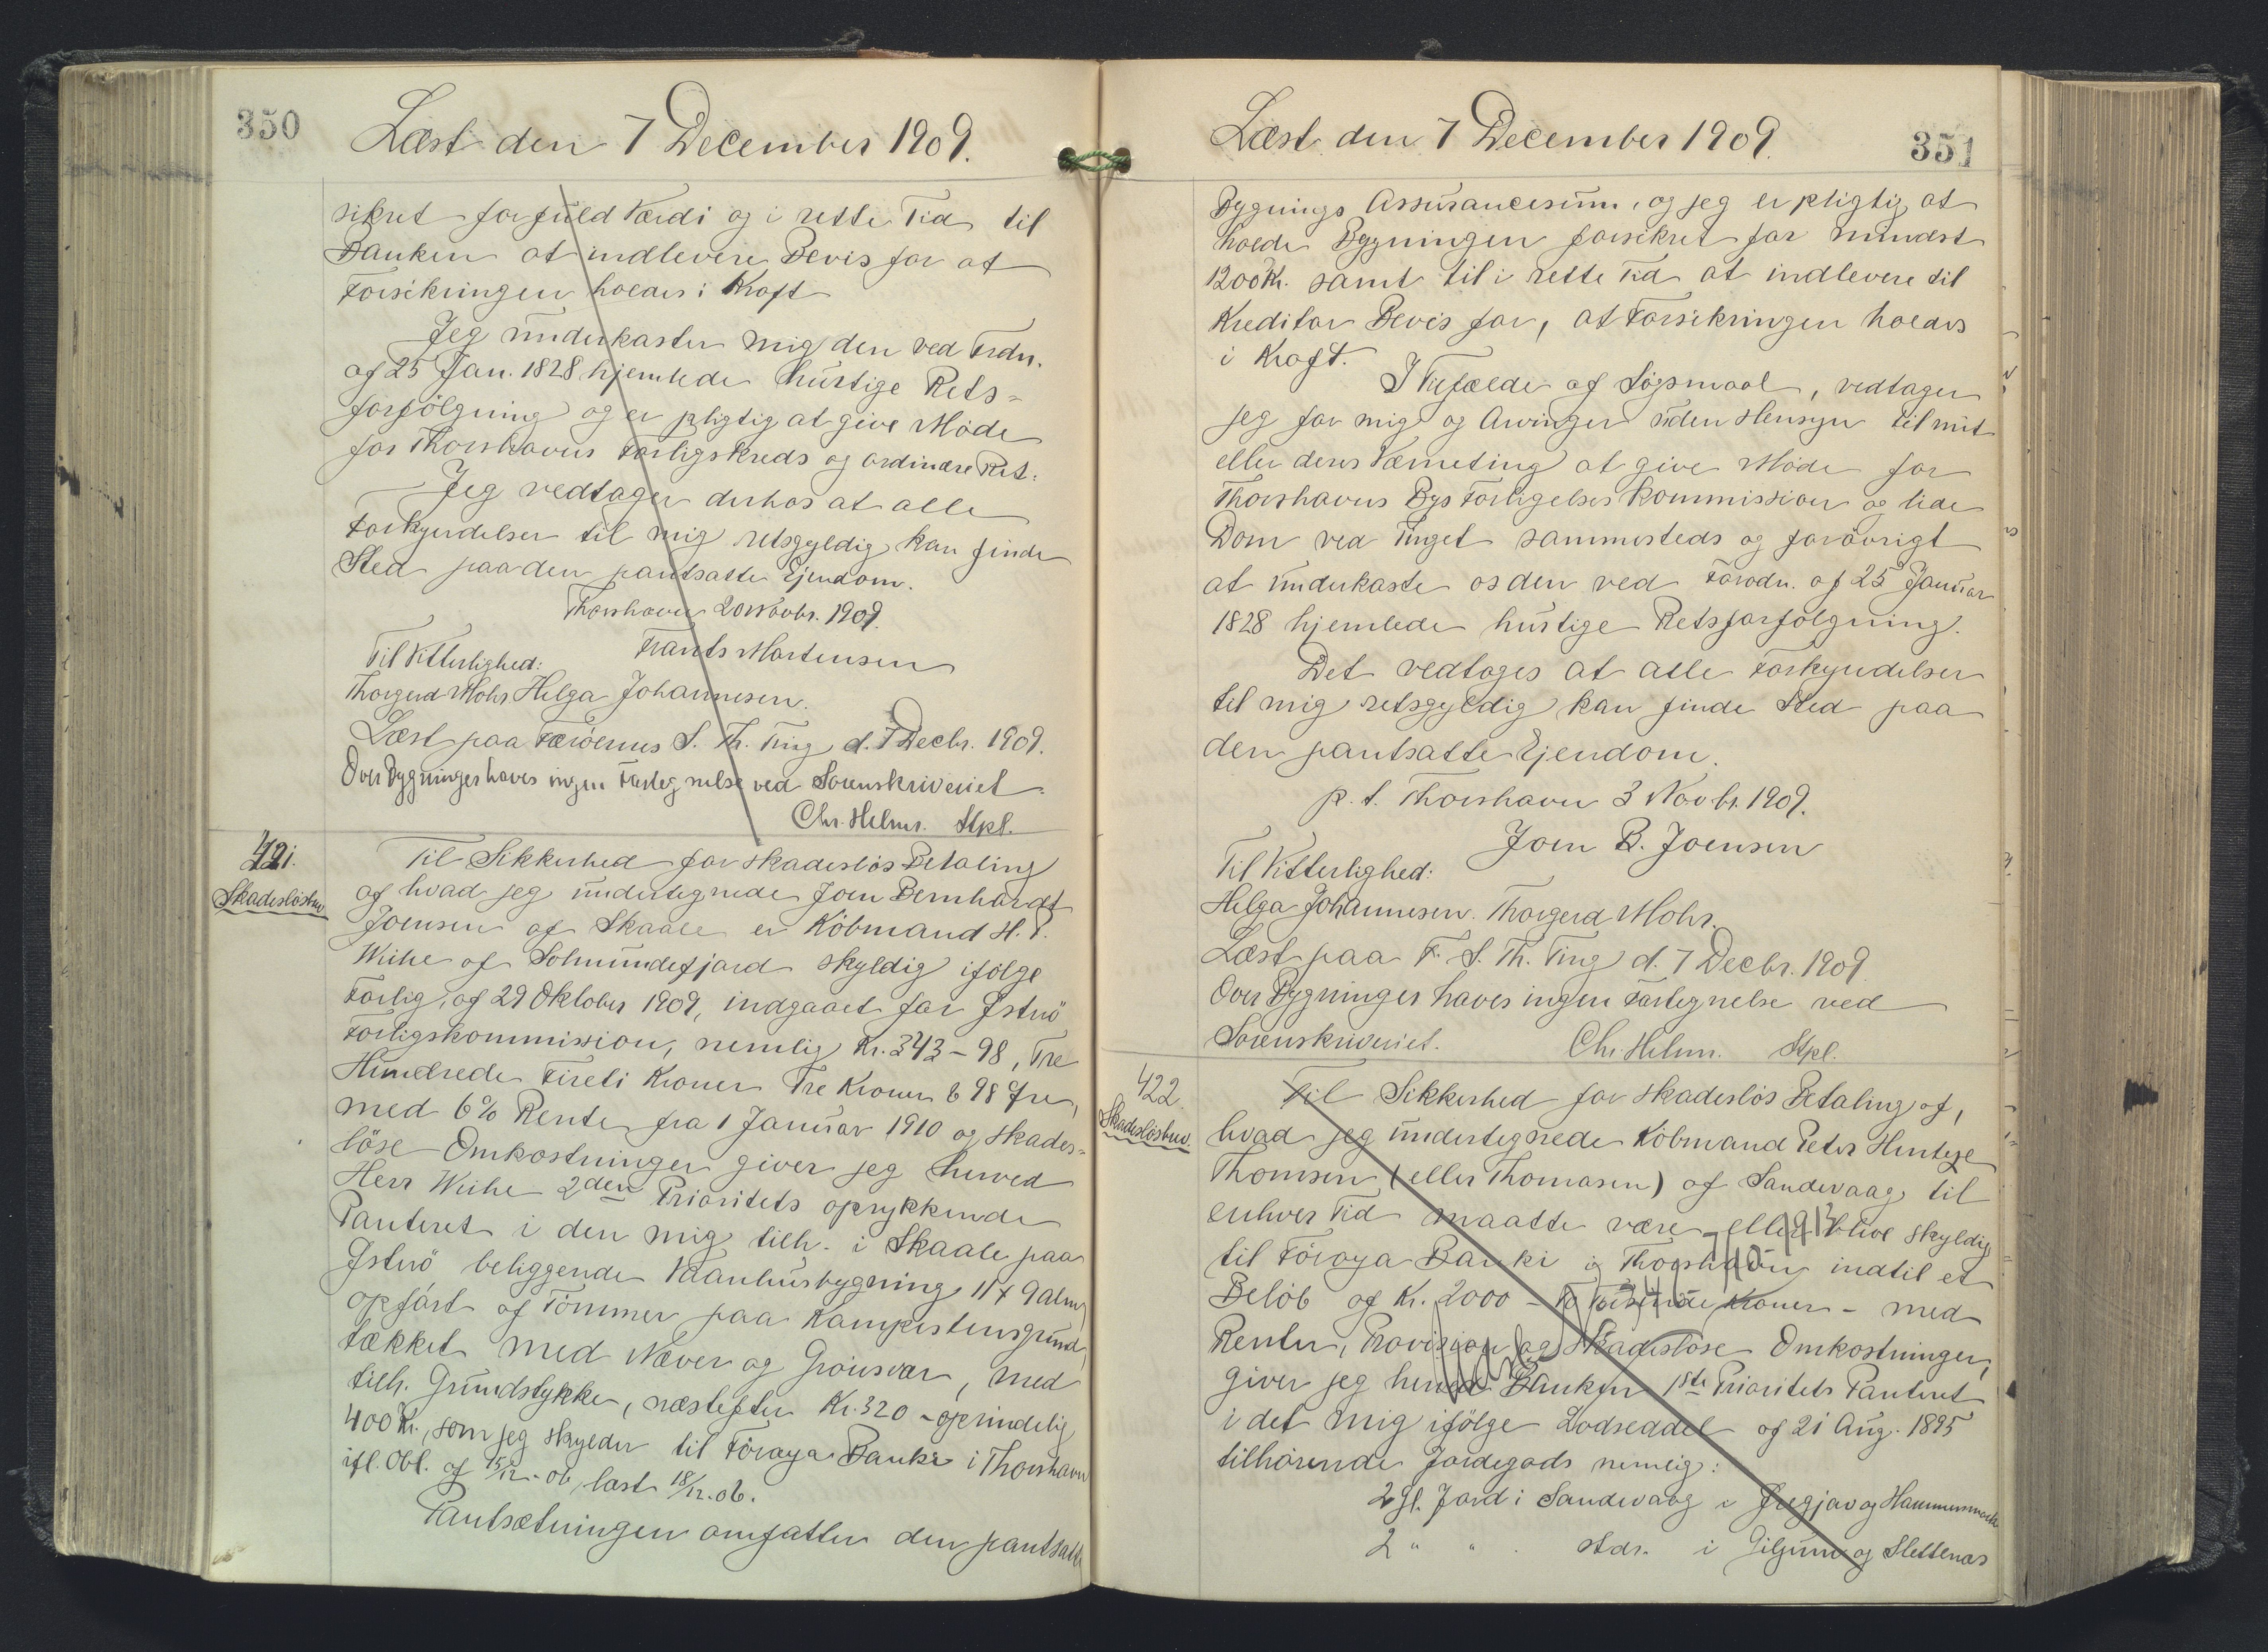 350
Læst den 7 December 1909.
sikret for fuld Værdi og i rette Tid til
Banken at indlevere Bevis for at
Forsikringen holdes i Kraft
Jeg underkaster mig den ved Frdn.
af 25 Jan. 1828 hjemlede hurtige Rets-
forfölgning og er pligtig at give Möde
for Thorshavns Forligskreds og ordinære Ret.
Jeg vedtager derhos at alle
Forkyndelser til mig retsgyldig kan finde
Sted paa den pantsatte Ejendom.
Thorshavn 20 Novbr. 1909.
Frants Mortensen
Til Vitterlighed:
Thorgerd Mohr Helga Johannesen.
Læst paa Færöernes S. Th. Ting d. 7 Decbr. 1909.
Over Bygninger haves ingen Fortegnelse ved Sorenskriveriet.
Chr. Helms. Kpl.
421.
Skadeslösbrev
Til Sikkerhed for skadeslös Betaling
af hvad jeg undertegnede Joen Bernhardt
Joensen af Skaale er Köbmand H. P.
Weihe af Solmundefjord skyldig ifölge
Forlig, af 29 Oktober 1909, indgaaet for Østerö
Forligskommission, nemlig Kr. 343-98, Tre
Hundrede Fireti Kroner Tre Kroner & 98 Øre,
med 6% Rente fra 1 Januar 1910 og skades-
löse Omkostninger giver jeg herved
Herr Weihe 2den Prioritets oprykkende
Panteret i den mig tilh. i Skaale paa
Østerö beliggende Vaanhusbygning 11 x 9 alm,
opfört af Tömmer paa Kampestensgrund,
tækket med Næver og Grönsvær, med
tilh. Grundstykke, næstefter Kr. 320 - oprindelig
400 Kr., som jeg skylder til Föroya Banki i Thorshavn
ifl. Obl. af 15/12-06, læst 18/12.06.
Pantsætningen omfatter den pantsatte
Læst den 7 December 1909.
351
Bygnings Assurancesum, og jeg er pligtig at
holde Bygningen forsikret for mindst
1200 Kr. samt til i rette Tid at indlevere til
Kreditor Bevis for, at Forsikringen holdes
i Kraft.
I Tilfælde af Sögsmaal, vedtager
jeg for mig og Arvinger uden Hensyn til mit
eller deres Værneting at give Möde for
Thorshavns Bys Forligelses Kommission og lide
Dom ved Tinget sammesteds og forövrigt
at underkaste os den ved Forodn. af 25 Januar
1828 hjemlede hurtige Retsforfölgning.
Det vedtages at alle Forkyndelser
til mig retsgyldig kan finde Sted paa
den pantsatte Ejendom.
p. t. Thorshavn 3 Novbr. 1909.
Joen B. Joensen
Til Vitterlighed:
Helga Johannesen. Thorgerd Mohr.
Læst paa F. S. Th. Ting d. 7 Decbr. 1909
Over Bygninger haves ingen Fortegnelse ved
Sorenskriveriet. Chr. Helms. Kpl.
422.
Skadeslösbrev.
Til Sikkerhed for skadeslös Betaling af,
hvad jeg undertegnede Köbmand Peter Hentze
Thomsen (eller Thomasen) af Sandevaag til
enhver Tid maatte være eller blive skyldig
til Föroya Banki i Thorshavn indtil et
Belöb af Kr. 2000 - To Tusinde Kroner - med
Renter, Provision og Skadeslöse Omkostninger,
giver jeg herved Banken 1ste Prioritets Panteret
i det mig ifölge Lodseddel af 21 Aug. 1895
tilhörende Jordegods nemlig:
2 gl. Jord i Sandevaag i Gregjav og Hammersmark
2 " " . stds. i Giljum og Slettenæs